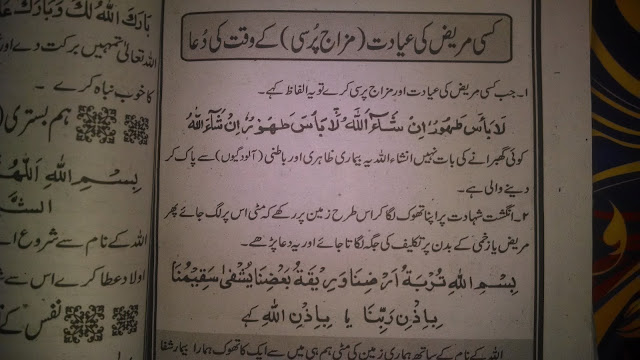 کسی مریض کی عیادت (مزاج پُرسی) کے وقت کی دُعا
۱۔ جب کسی مریض کی عیادت اور مزاج پرسی کرے تو یہ الفاظ کہے۔
لَا بَأْسَ طَهُوْرٌ اِنْ شَآءَ اللّٰهُ لَا بَأْسَ طَهُوْرٌ اِنْ شَآءَ اللّٰهُ
کوئی گھبرانے کی بات نہیں انشاء اللہ یہ بیماری ظاہری اور باطنی (آلودگیوں) سے پاک کر
دینے والی ہے۔
۲۔ انگشت شہادت پر اپنا تھوک لگا کر اس طرح زمین پر رکھے کہ مٹی اس پر لگ جائے پھر
مریض یا زخمی کے بدن پر تکلیف کی جگہ لگاتا جائے اور یہ دعا پڑھے۔
بِسْمِ اللّٰهِ تُرْبَةُ اَرْضِنَا وَ بِرِيْقَةِ بَعْضِنَا يُشْفٰى سَقِيْمُنَا
بِاِذْنِ رَبِّنَا یا بِاِذْنِ اللّٰهِ کہے
اللہ کے نام کے ساتھ ہماری زمین کی مٹی ہم ہی میں سے ایک کا تھوک ہمارا بیمار شفا
بَارَكَ اللّٰهُ لَكَ وَ بَارَكَ
اللہ تعالیٰ تمہیں برکت دے اور
کا خوب نباہ کرے۔
ہم بستری
بِسْمِ اللّٰهِ اَللّٰهُمَّ
اللہ کے نام سے شروع
اولاد عطا کرے اس سے
نفس کے